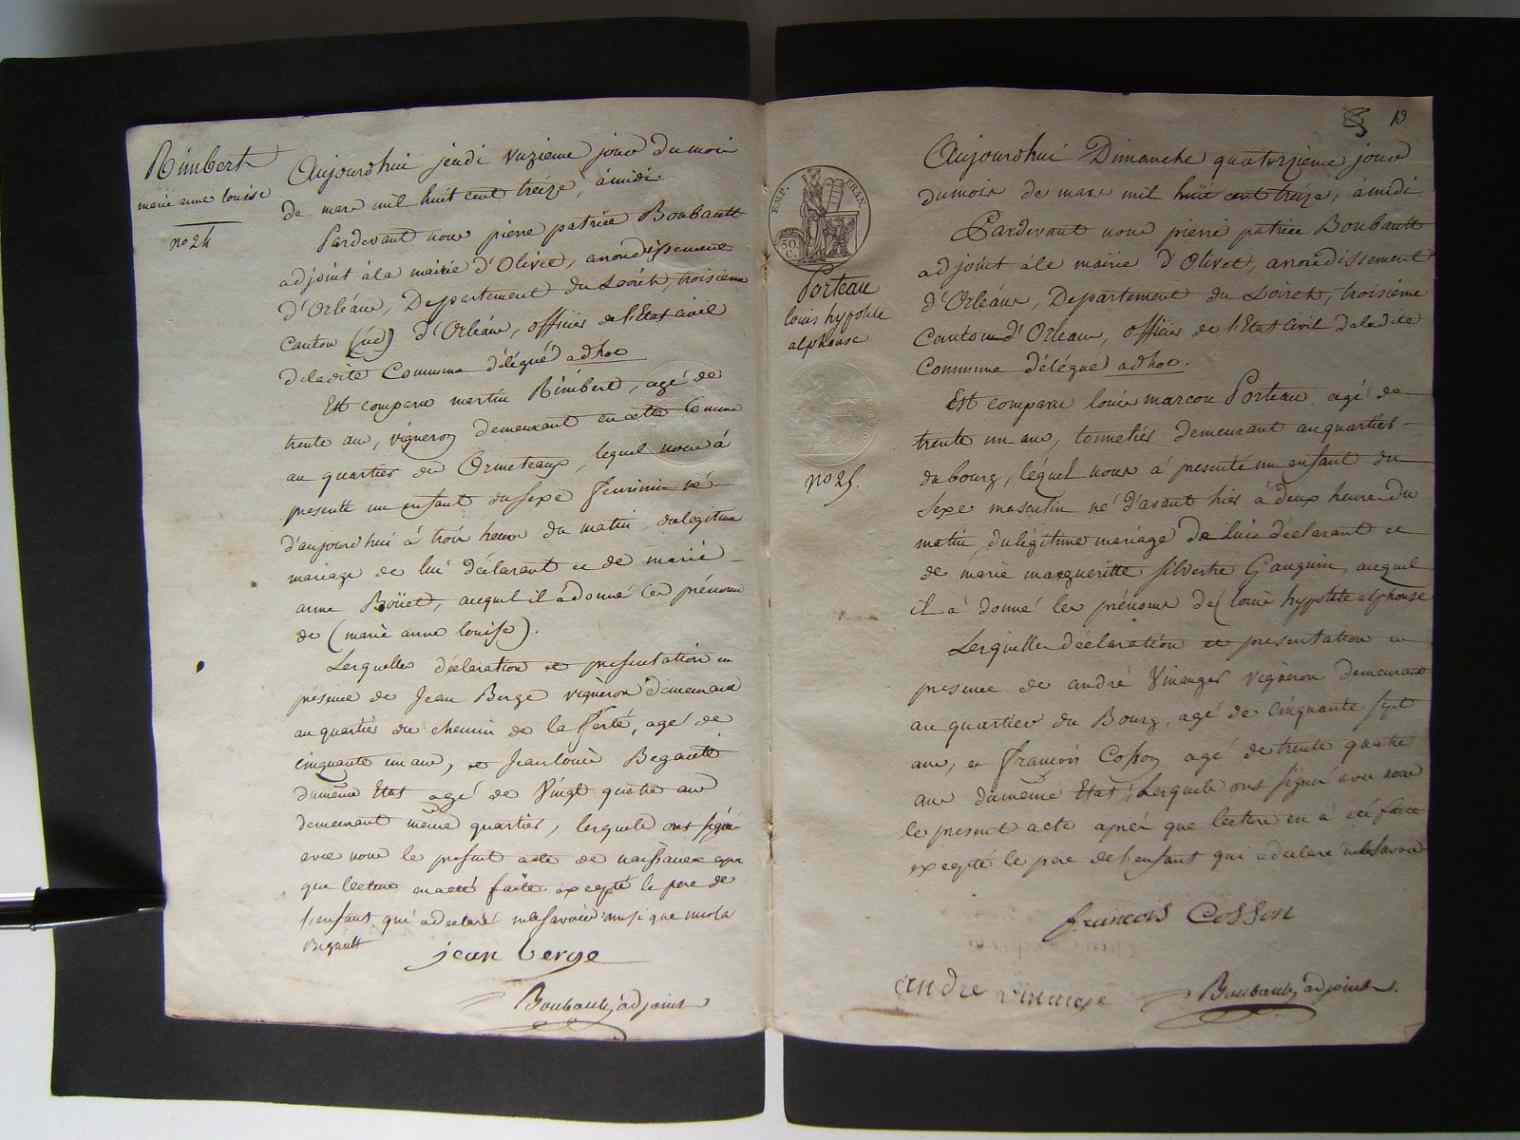 Rimbert
marie anne louise
no 24
Aujourdhui jeudi onzieme jour du mois
de mars mil huit cent treize, àmidi
Pardevant nous pierre patrice Boubault
adjoint àla mairie d'Olivet, arrondissement
d'Orléans, Departement du Loiret, troisieme
Canton (sud) d'Orléans, officier de l'Etat civil
deladite Commune délégué adhoc
Est comparu martin Rimbert, agé de
trente ans, vigneron demeurant en cette Commune
au quartier des Ormeteaux, lequel nous à
presenté un enfant du sexe feminin né
d'aujourdhui à trois heures du matin, du legitime
mariage de lui déclarant et de marie
anne Boüet, auquel il àdonné les prénoms
de (marie anne louise).
Lesquelles déclaration et presentation en
présence de Jean Berge vigneron demeurant
au quartier du chemin de la Ferté, agé de
cinquante un ans, et Jean louis Begault
dumême Etat agé de Vingt quatre ans
demeurant même quartier, lesquels ont signé
avec nous le présent acte de naissance après
que lecture en aété faite excepté le pere de
l'enfant qui adeclaré nelesavoir ainsi que
Begault
jean berge
Boubault, adjoint
19
EMP. FRAN.
50 C.
Porteau
louis hypolite
alphonse
no 25.
Aujourdhui Dimanche quatorzieme jour
dumois de mars mil huit cent treize, àmidi
Pardevant nous pierre patrice Boubault
adjoint àla mairie d'Olivet, arrondissement
d'Orléans, Departement du Loiret, troisieme
Canton d'Orleans, officier de l'Etat Civil deladite
Commune délégué adhoc.
Est comparu louis marcou Porteau agé de
trente un ans, tonnelier demeurant auquartier
du bourg, lequel nous à presenté un enfant du
sexe masculin né d'avant hier à deux heures du
matin, dulégitime mariage de lui déclarant et
de marie margueritte silvestre Gauguin, auquel
il à donné les prénoms de (louis hypolite alphonse
Lesquelles déclaration et presentation en
presence de andré Vinauger vigneron demeurant
au quartier du Bourg, agé de cinquante sept
ans, et francois Cosson agé de trente quatre
ans dumême Etat; Lesquels ont signé avec nous
le present acte après que lecture en à été faite
excepté le pere de l'enfant qui adeclaré nelesavoir
francois Cosson
andre
Boubault, adjoint.